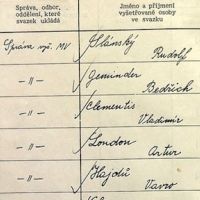 Správa, odbor,
oddělení, které
svazek ukládá
Jméno a příjmení
vyšetřované osoby
ve svazku
Správa vyš. MV
Slánský
Rudolf
-"-
Geminder
Bedřich
-"-
Clementis
Vladimír
-"-
London
Artur
-"-
Hajdů
Vavro